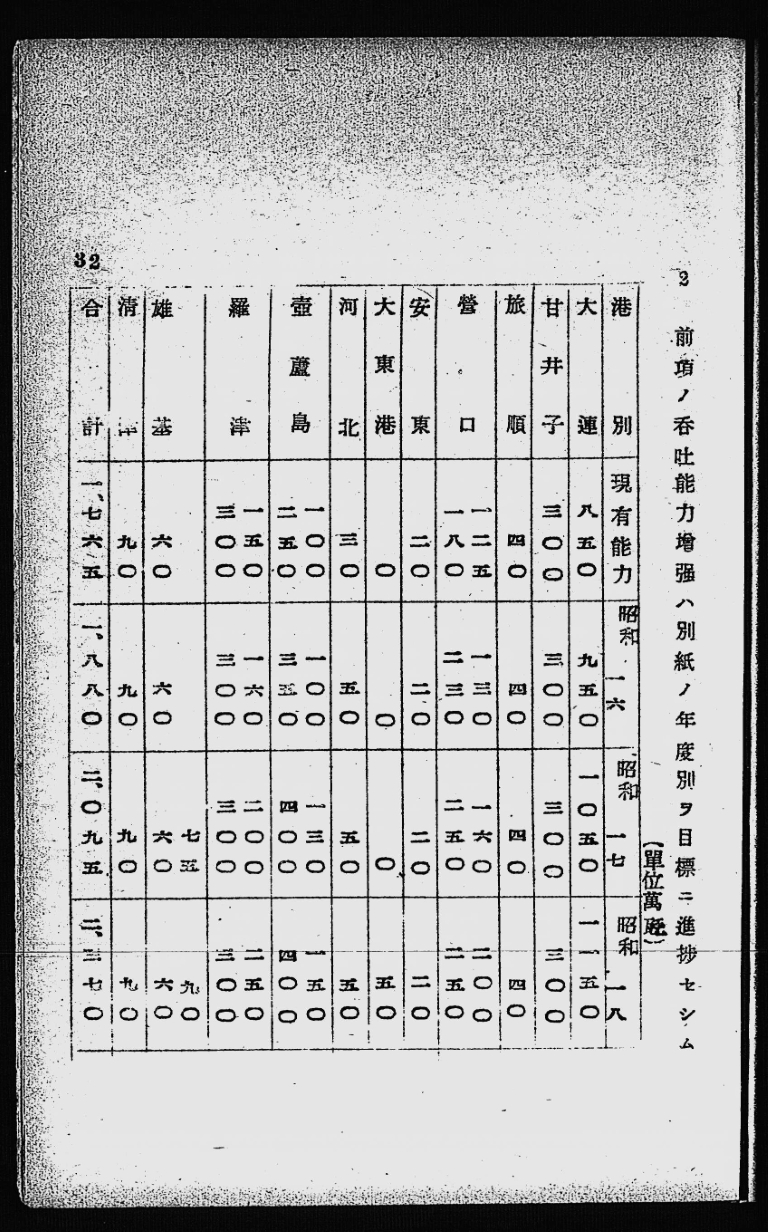 2 前項ノ呑吐能力增强ハ別紙ノ年度別ヲ目標ニ進捗セシム
(單位萬瓲)
港別 現有能力 昭和一六 昭和一七 昭和一八
大連 八五〇 九五〇 一〇五〇 一一五〇
甘井子 三〇〇 三〇〇 三〇〇 三〇〇
旅順 四〇 四〇 四〇 四〇
營口 一二五 一三〇 一六〇 二〇〇
一八〇 二三〇 二五〇 二五〇
安東 二〇 二〇 二〇 二〇
大東港 〇 〇 〇 五〇
河北 三〇 五〇 五〇 五〇
壺蘆島 一〇〇 一〇〇 一三〇 一五〇
二五〇 三五〇 四〇〇 四〇〇
羅津 一五〇 一六〇 二〇〇 二五〇
三〇〇 三〇〇 三〇〇 三〇〇
雄基 七五 九〇
六〇 六〇 六〇 六〇
清津 九〇 九〇 九〇 九〇
合計 一、七六五 一、八八〇 二、〇九五 二、三七〇
32